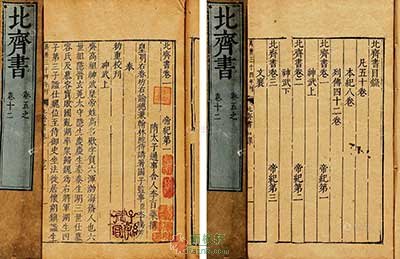 北齊書
卷五之
卷十二
北齊書卷一 帝紀第一
隋太子通事舍人李百藥撰
皇明右春坊右諭德兼翰林院侍講署國子監事
奉
勅重校刊
神武上
齊高祖神武皇帝姓高名歡字賀六渾渤海蓨人也六
世祖隱晉玄菟太守隱生慶慶生泰泰生湖三世仕慕
容氏及慕容寶敗國亂湖率眾歸魏為右將軍湖生四
子第三子謐仕魏位至侍御史坐法徙居懷朔鎮謐生
北齊書
卷五之
卷十二
北齊書目錄
凡五十卷
本紀八卷
列傳四十二卷
北齊書卷一 帝紀第一
神武上
北齊書卷二 帝紀第二
神武下
北齊書卷三 帝紀第三
文襄